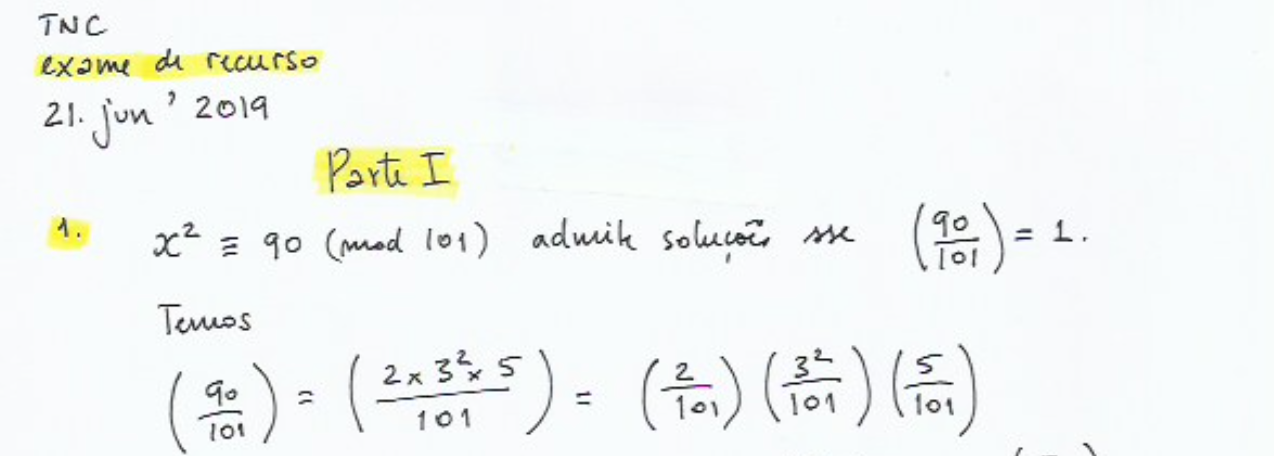 TNC
exame de recurso
21. jun ' 2019
Parte I
1. x² ≡ 90 (mod 101) admite soluções sse (90/101) = 1.
Temos
(90/101) = (2 × 3² × 5 / 101) = (2/101) (3²/101) (5/101)